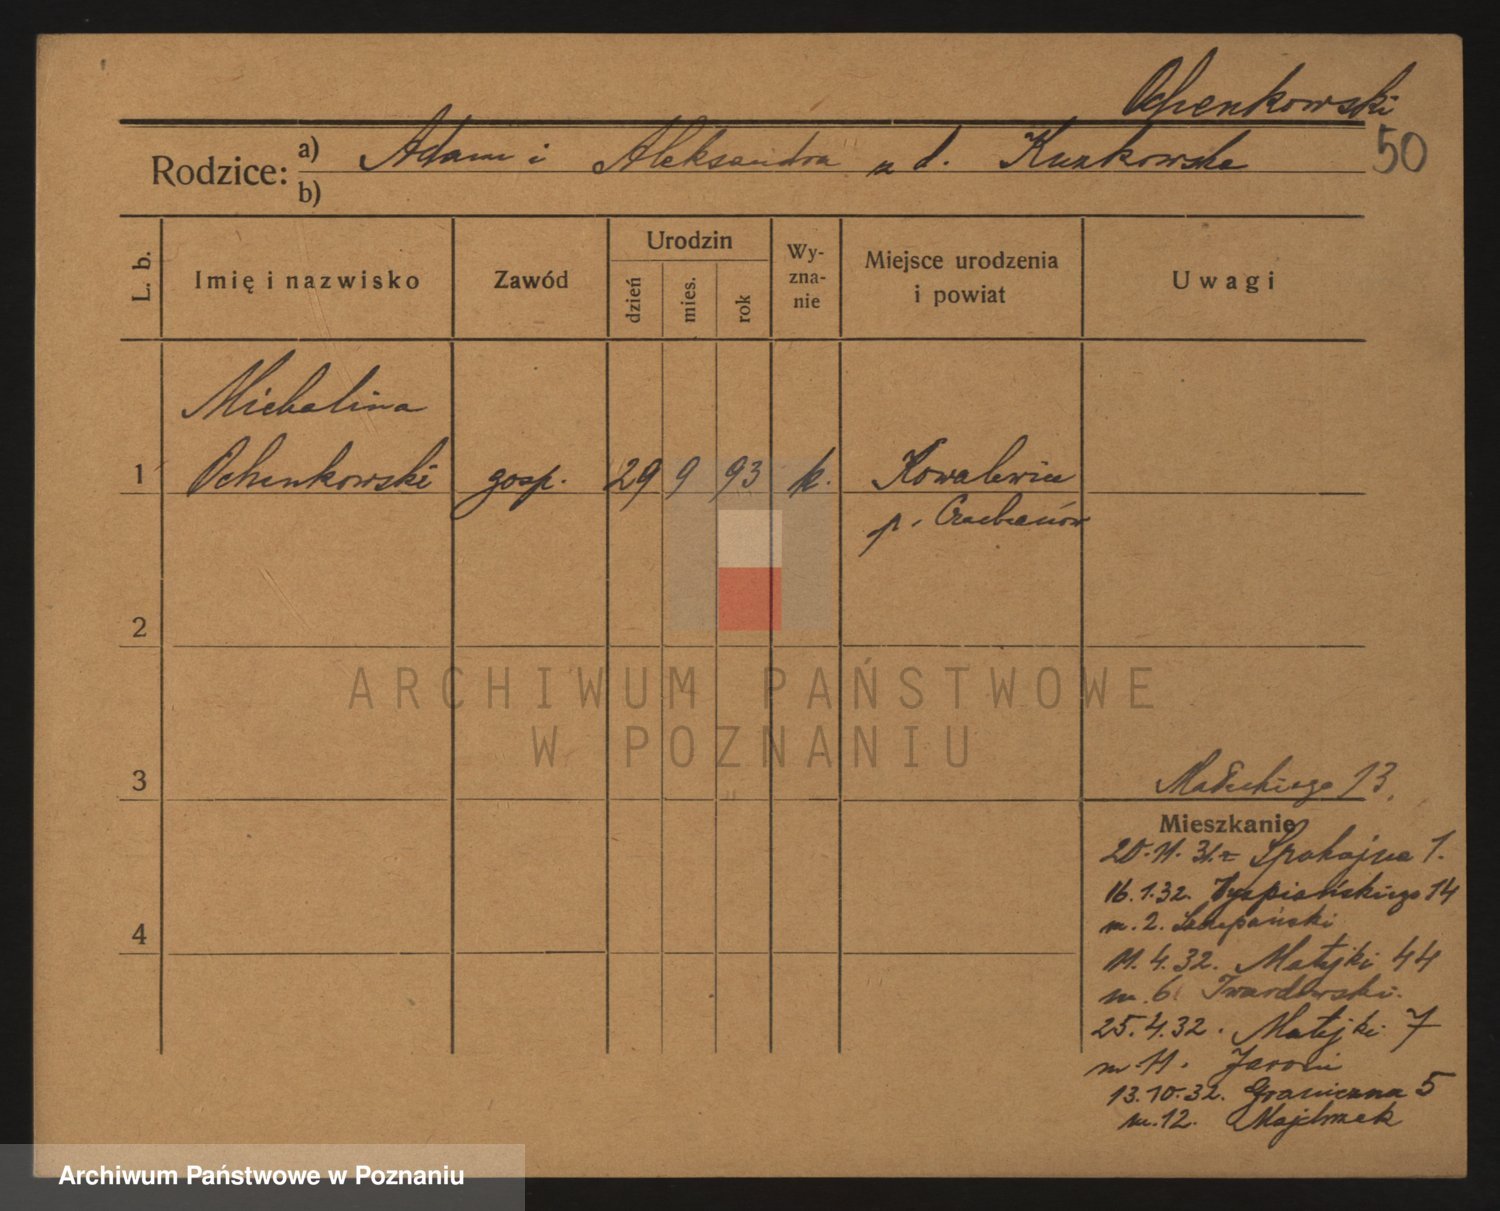 Ochenkowski
50
Rodzice: a) Adam i Aleksandra z d. Kurkowska
b)
L. b.
Imię i nazwisko
Zawód
Urodzin
dzień
mies.
rok
Wy-
zna-
nie
Miejsce urodzenia
i powiat
Uwagi
Michalina
1 Ochenkowski gosp. 29 9 93 k. Kowalewice
p.
2
3
4
Małeckiego 13.
Mieszkanie
20.11.31.r Spokojna 1.
16.1.32. Wyspiańskiego 14
m. 2. Szczepański
11.4.32. Matejki 44
m. 6 Twardowski.
25.4.32. Matejki 7
m. 11.
13.10.32. Graniczna 5
m. 12. Majchrzak
ARCHIWUM PAŃSTWOWE
W POZNANIU
Archiwum Państwowe w Poznaniu